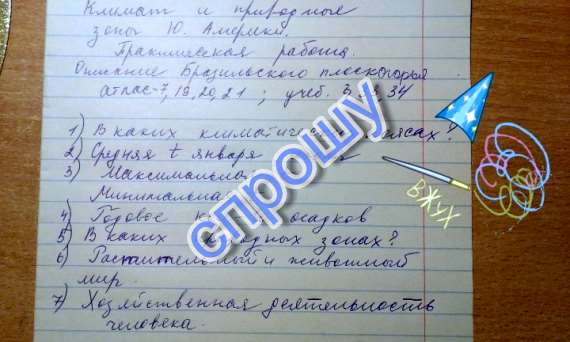 Климат и природные
зоны Ю. Америки.
Практическая работа.
Описание Бразильского плоскогорья
атлас-7, 19, 20, 21 ; учеб. 34
1) В каких климатических поясах?
2) Средняя t января
3) Максимальная
Минимальная
4) Годовое осадков
5) В каких природных зонах?
6) Растительный и животный
мир.
7) Хозяйственная деятельность
человека.
спрошу
ВЖУХ